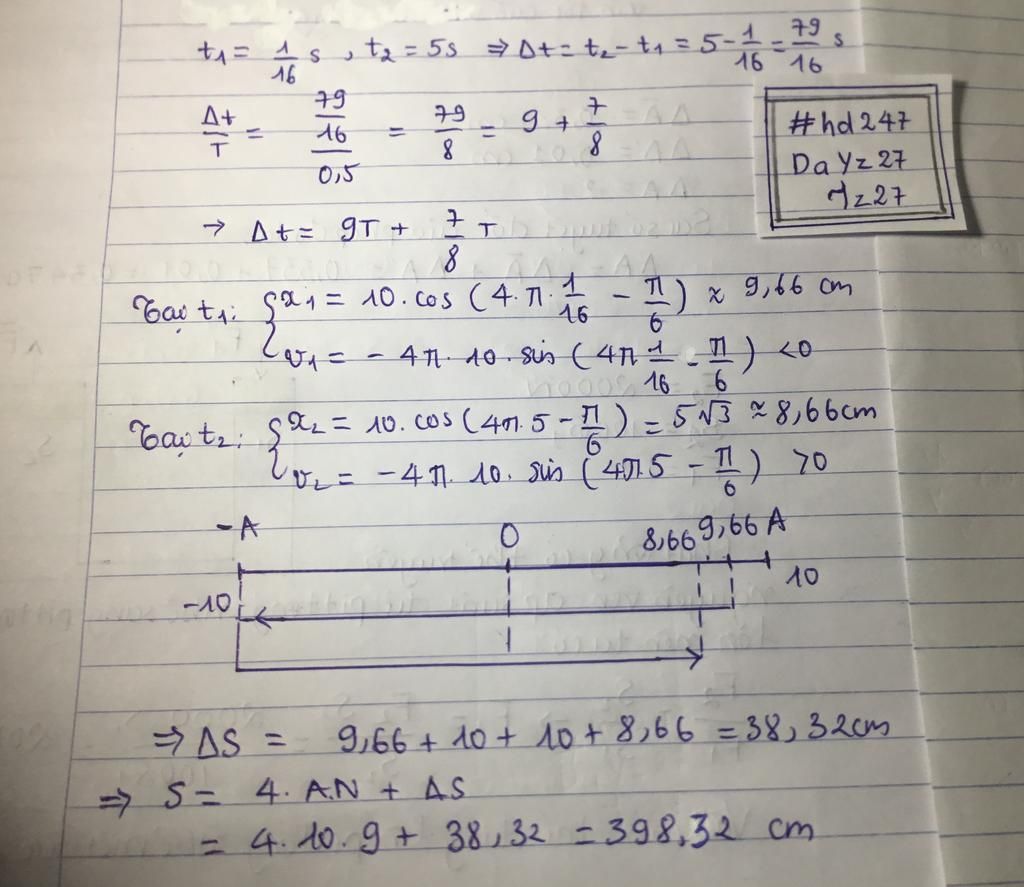 t₁ = 1/16 s , t₂ = 5s ⇒ Δt = t₂ - t₁ = 5 - 1/16 = 79/16 s
Δt/T = (79/16)/0,5 = 79/8 = 9 + 7/8
→ Δt = 9T + 7/8 T
#hd247
DaYz27
Jz27
Tại t₁: { x₁ = 10.cos (4.π.1/16 - π/6) ≈ 9,66 cm
v₁ = - 4π. 10. sin (4π 1/16 - π/6) <0
Tại t₂: { x₂ = 10.cos (4π.5 - π/6) = 5√3 ≈ 8,66cm
v₂ = -4π. 10. sin (4π.5 - π/6) >0
-A O 8,66 9,66 A
-10 10
⇒ ΔS = 9,66 + 10 + 10 + 8,66 = 38,32cm
⇒ S = 4. A.N + ΔS
= 4.10.9 + 38,32 = 398,32 cm